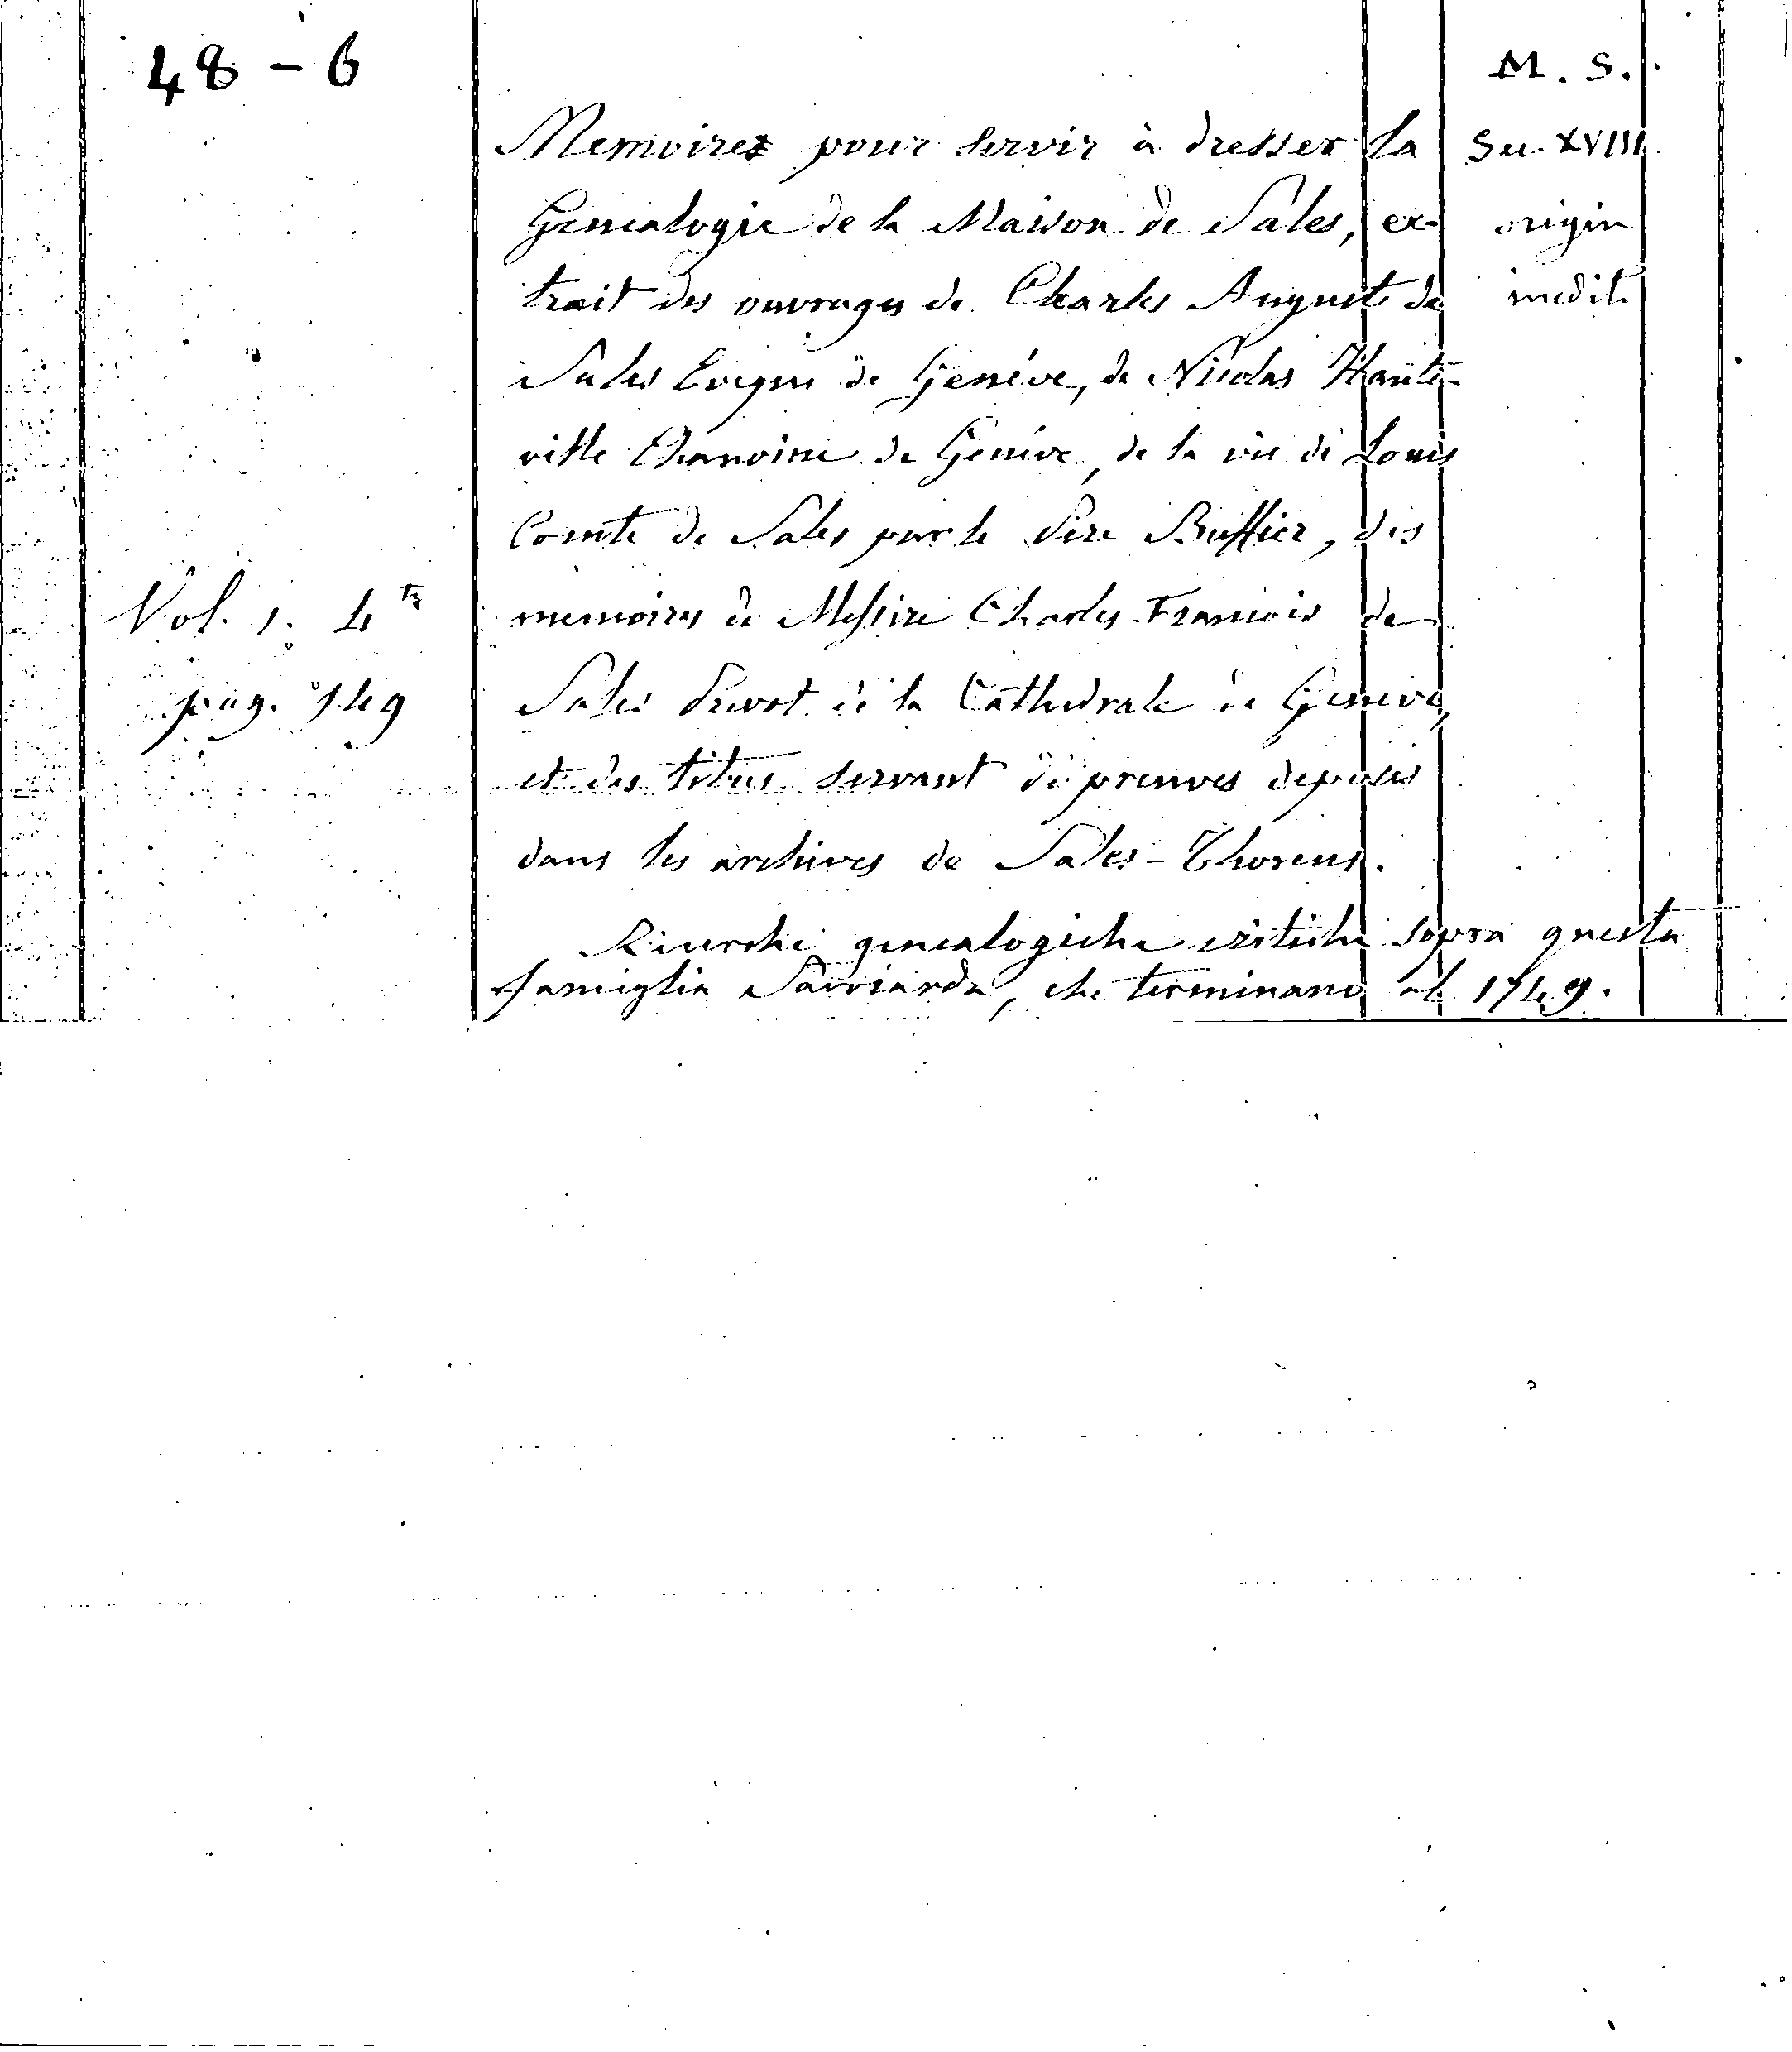 48 - 6
M. S.
Memoires pour servir à dresser la
Sec. XVIII.
Genealogie de la Maison de Sales, ex-
origin
trait des ouvrages de Charles Auguste de
inedit.
Sales Eveque de Genéve, de Nicolas Haute-
ville Chanoine de Genéve, de la vie de Louis
Comte de Sales par le Père Buffier, des
Vol. 1. 4to
memoires de Messire Charles-Francois de
pag. 149
Sales Prevot de la Cathedrale de Geneve,
et des titres servant de preuves deposés
dans les archives de Sales-Thorens.
Ricerche genealogiche critiche sopra questa
famiglia Savoiarda, che terminano al 1749.